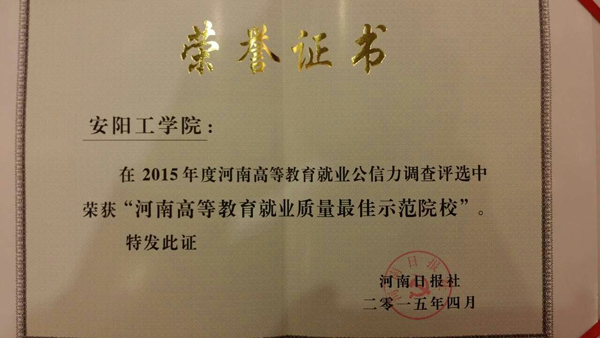 荣誉证书
安阳工学院：
在2015年度河南高等教育就业公信力调查评选中
荣获“河南高等教育就业质量最佳示范院校”。
特发此证
河南日报社
二〇一五年四月
河南日报